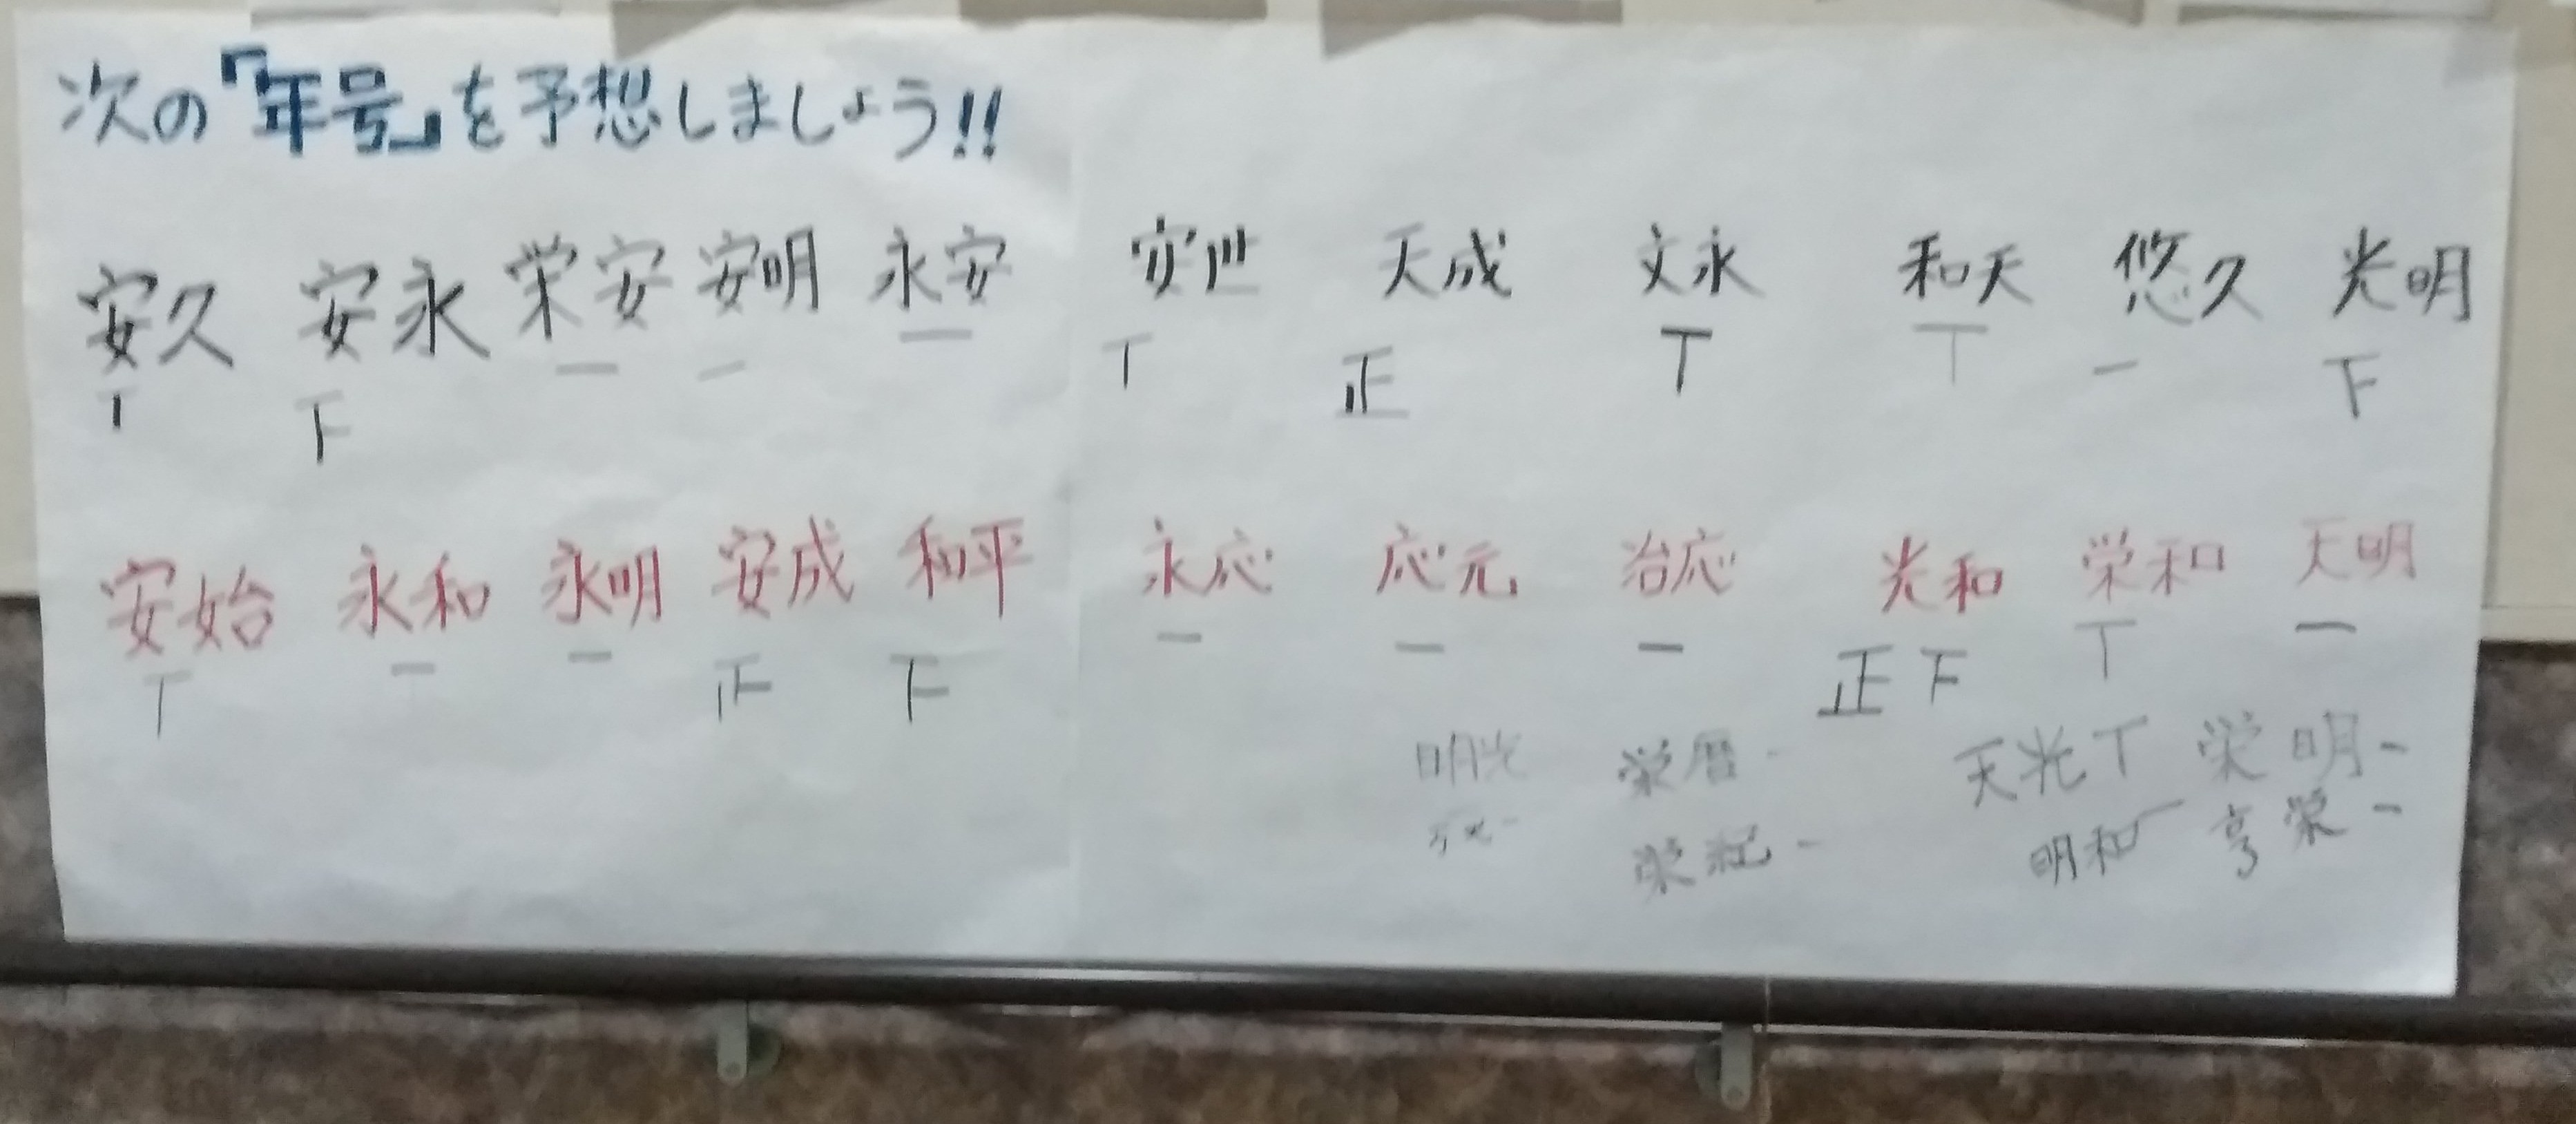 次の『年号』を予想しましょう!!
安久 安永 栄安 安明 永安 安世 天成 文永 和天 悠久 光明
丅 下 一 一 一 丅 正 丅 丅 一 下
安始 永和 永明 安成 和平 永応 応元 治応 光和 栄和 天明
丅 一 一 正 下 一 一 一 正下 丅 一
明光 栄暦 - 天光 丅 栄明 -
栄紀 - 明和 一 亨栄 -